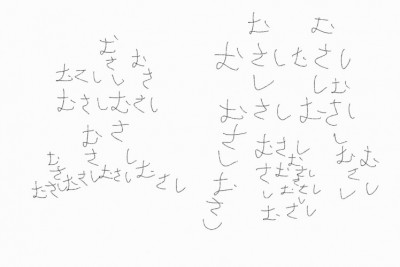 むさし
むさし
むさし
むさしむさし
むさし
むさし
むさしむさしむさしむさし
むさし
むさし
むさしむさし
むさし
むさしむさし
さしむさし
むさし
むさし
むさし
むさし
むさし
むさし